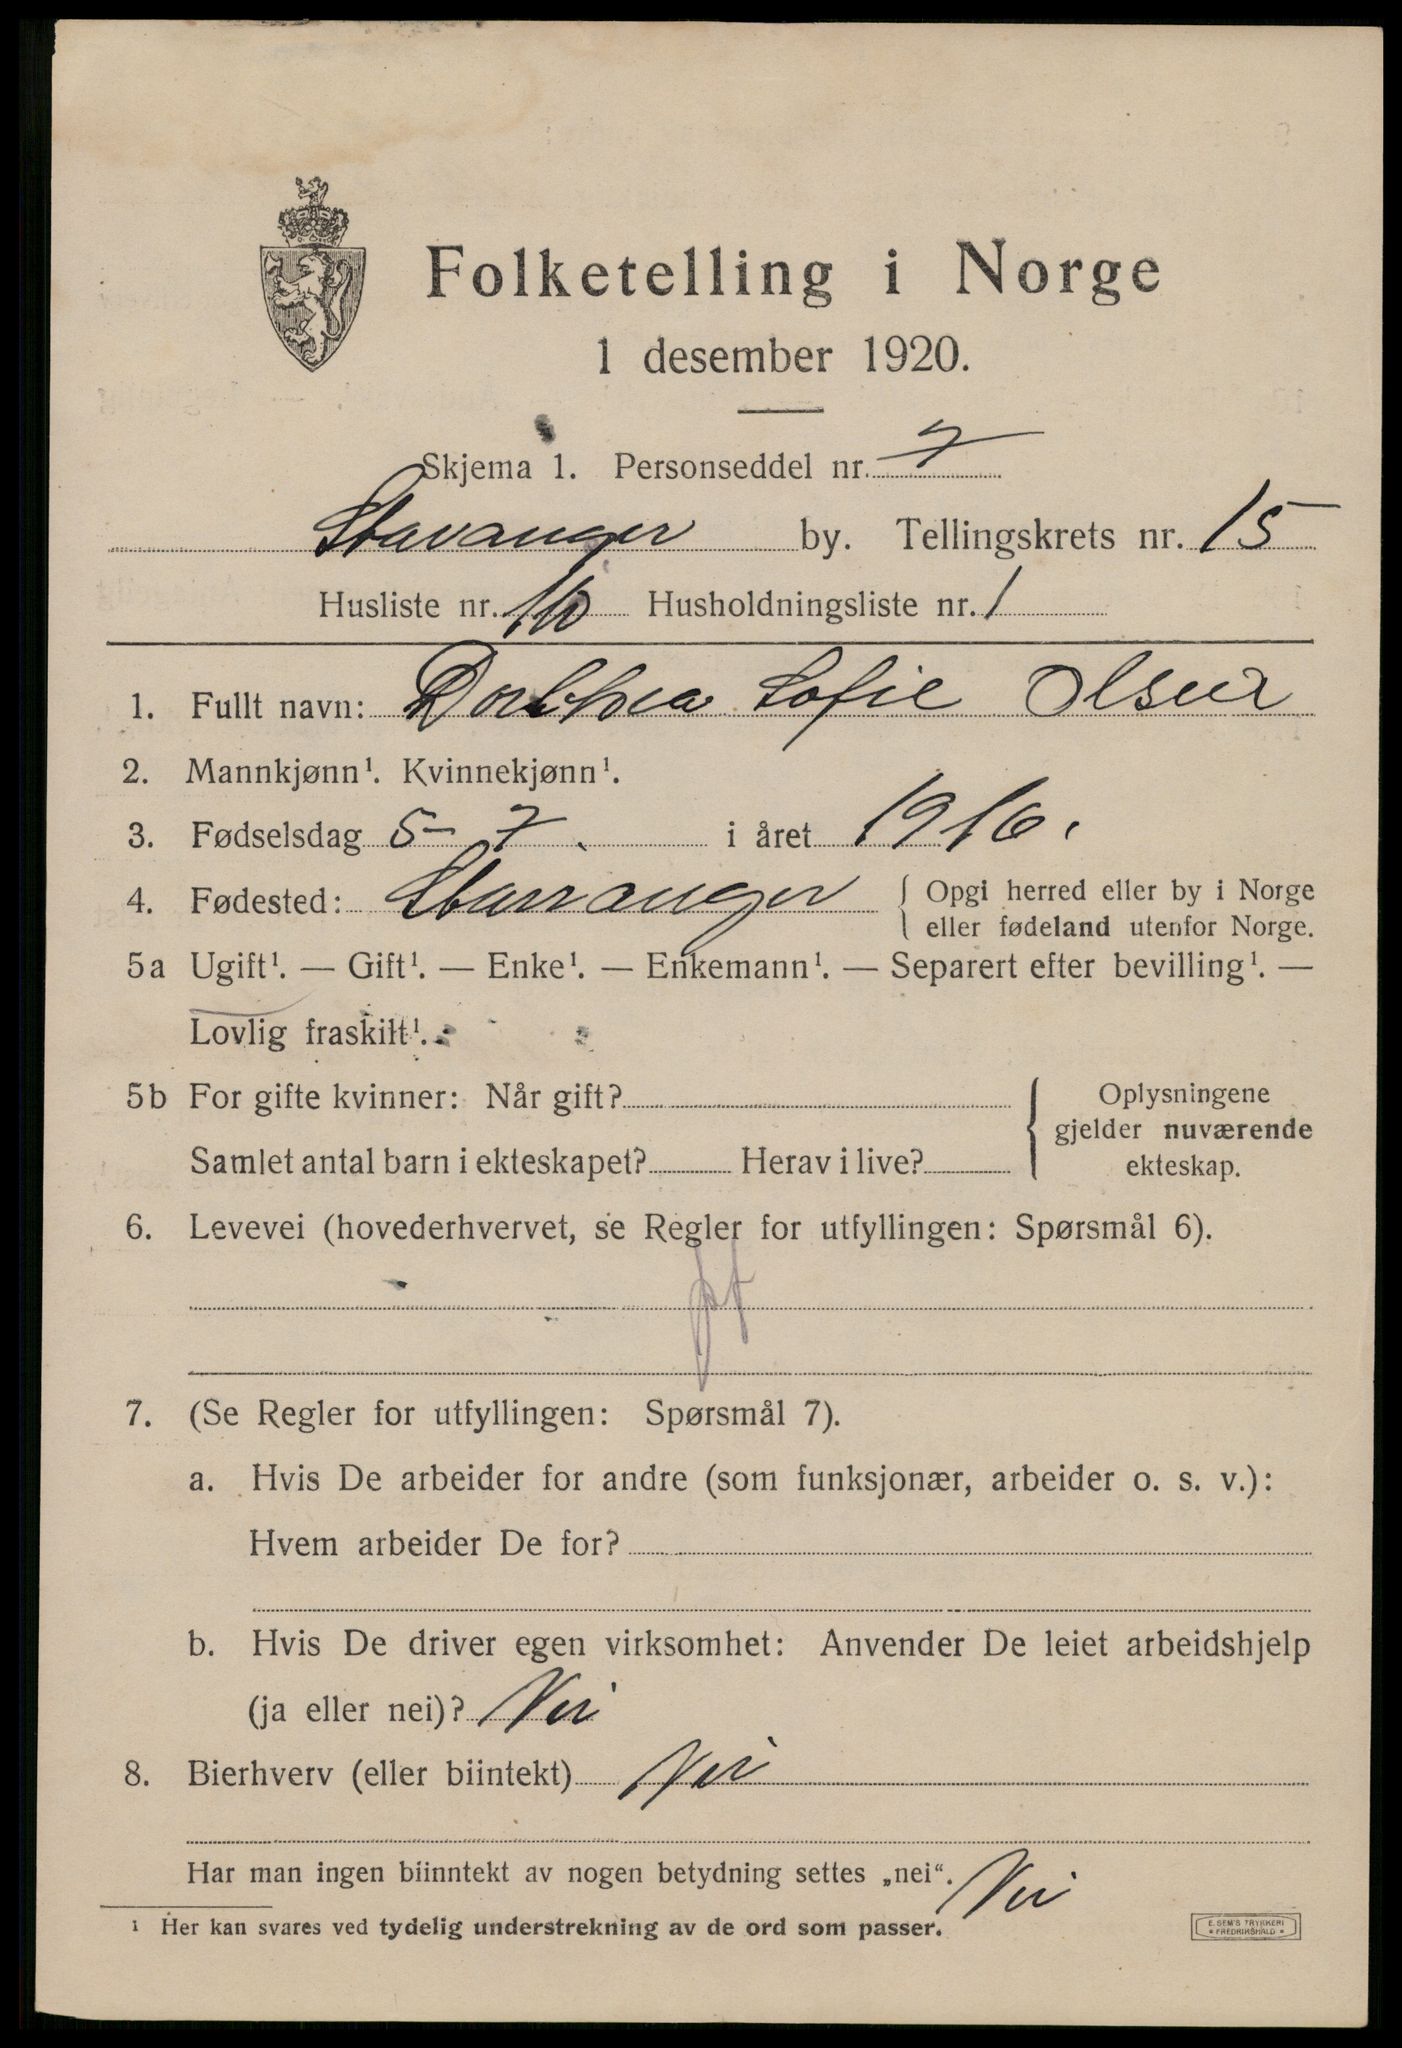 Folketelling i Norge
1 desember 1920.
Skjema 1. Personseddel nr. 7
Stavanger by. Tellingskrets nr. 15
Husliste nr. 110 Husholdningsliste nr. 1
1. Fullt navn: Dorthea Sofie Olsen
2. Mannkjønn¹. Kvinnekjønn¹.
3. Fødselsdag 5-7. i året 1916.
4. Fødested: Stavanger { Opgi herred eller by i Norge
eller fødeland utenfor Norge.
5a Ugift¹. — Gift¹. — Enke¹. — Enkemann¹. — Separert efter bevilling¹. —
Lovlig fraskilt¹.
5b For gifte kvinner: Når gift?
Samlet antal barn i ekteskapet? Herav i live?
Oplysningene
gjelder nuværende
ekteskap.
6. Levevei (hovederhvervet, se Regler for utfyllingen: Spørsmål 6).
7. (Se Regler for utfyllingen: Spørsmål 7).
a. Hvis De arbeider for andre (som funksjonær, arbeider o. s. v.):
Hvem arbeider De for?
b. Hvis De driver egen virksomhet: Anvender De leiet arbeidshjelp
(ja eller nei)? Nei
8. Bierhverv (eller biintekt) Nei
Har man ingen biinntekt av nogen betydning settes „nei“. Nei
¹ Her kan svares ved tydelig understrekning av de ord som passer.
E. SEM'S TRYKKERI
* FREDRIKSHALD *